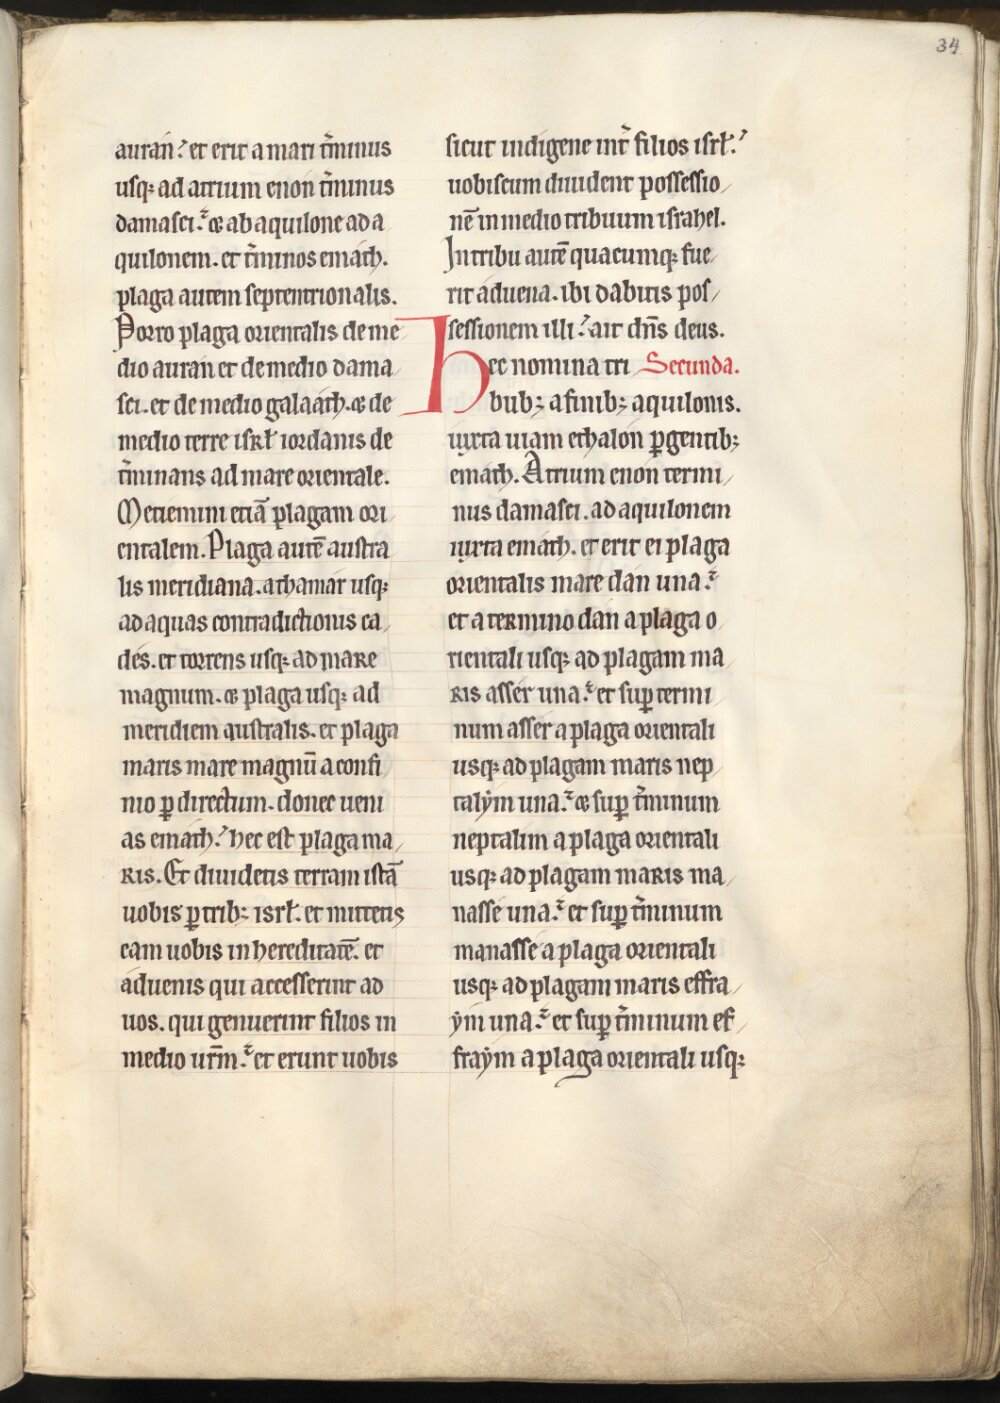 34
auran. et erit a mari t̄minus
usq; ad atrium enón t̄minus
damasci. & ab aquilone ad a
quilonem. et t̄minos emáth.
plaga autem septentrionalis.
Porro plaga orientalis de me
dio auran et de medio dama
sci. et de medio galaáth. & de
medio terre isrł iordanis de
t̄minans ad mare orientale.
Metiemini etiā plagam ori
entalem. Plaga autē austra
lis meridiana. a thamár usq;
ad aquas contradictionis ca
dés. et torrens usq; ad mare
magnum. & plaga usq; ad
meridiem australis. et plaga
maris mare magnū a confi
nio ꝑ directum. donec ueni
as emáth. hec est plaga ma
ris. Et diuidetis terram istā
uobis ꝑ trib; isrł. et mittetis
eam uobis in hereditatē. et
aduenis qui accesserint ad
uos. qui genuerint filios in
medio ur̄m. et erunt uobis
sicut indigene int̄ filios isrł.
uobiscum diuident possessio
nē in medio tribuum israhel.
In tribu autē quacumq; fue
rit aduena. ibi dabitis pos
sessionem illi. ait dn̄s deus.
Hec nomina tri Secunda.
bub; a finib; aquilonis.
iuxta uiam ethalón ꝑgentib;
emáth. Atrium enon termi
nus damasci. ad aquilonem
iuxta emáth. et erit ei plaga
orientalis mare dan una.
et a termino dan a plaga o
rientali usq; ad plagam ma
ris assér una. et suꝑ termi
num assér a plaga orientali
usq; ad plagam maris nep
talým una. & suꝑ t̄minum
neptalim a plaga orientali
usq; ad plagam maris ma
nasse una. et suꝑ t̄minum
manasse a plaga orientali
usq; ad plagam maris effra
ým una. et suꝑ t̄minum ef
fraým a plaga orientali usq;